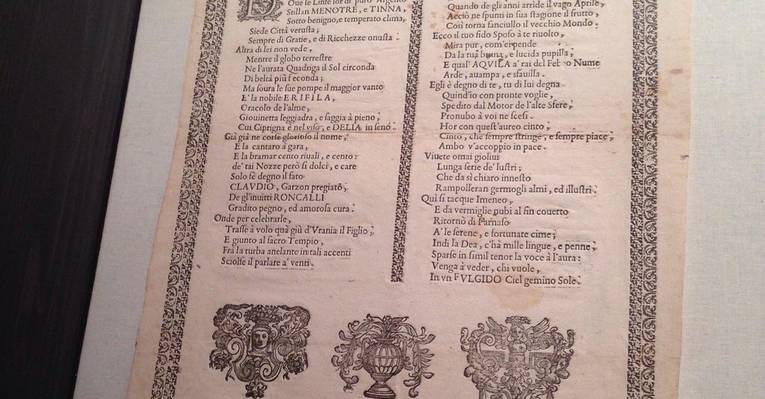 Oue le Linfe lor di puro Argento
Stillan MENOTRE, e TINNA,
Sotto benigno, e temperato clima,
Siede Città verusta;
Sempre di Gratie, e di Ricchezze onusta.
Altra di lei non vede,
Mentre il globo terrestre
Ne l'aurata Quadriga il Sol circonda
Di beltà più feconda;
Ma soura le sue pompe il maggior vanto
E' la nobile ERIFILA,
Oracolo de l'alme,
Giouinetta leggiadra, e saggia à pieno;
Cui Ciprigna è nel viso, e DELIA in seno.
Già già ne corse glorioso il nome,
E la cantaro à gara,
E la bramar cento riuali, e cento:
de' tai Nozze però sì dolci, e care
Solo fè degno il fato
CLAVDIO, Garzon pregiato,
De gl'inuitti RONCALLI
Gradito pegno, ed amorosa cura.
Onde per celebrarle,
Trasse à volo quà giù d'Vrania il Figlio;
E giunto al sacro Tempio,
Frà la turba anelante in tali accenti
Sciolse il parlare a' venti.
Quando de gli anni arride il vago Aprile,
Acciò ne spunti in sua stagione il frutto,
Così torna fanciullo il vecchio Mondo.
Ecco il tuo fido Sposo à te riuolto,
Mira pur, com'ei pende
Da la tua buona, e lucida pupilla;
E qual' AQVILA a' rai del Febeo Nume
Arde, auampa, e sfauilla.
Egli è degno di te, tu di lui degna
Quind'io con pronte voglie,
Spedito dal Motor de l'alte Sfere,
Pronubo à voi ne scesi.
Hor con quest'aureo cinto,
Cinto, che sempre stringe, e sempre piace,
Ambo v'accoppio in pace.
Viuete omai gioliui
Lunga serie de' lustri;
Che da sì chiaro innesto
Rampolleran germogli almi, ed illustri.
Quì si tacque Imeneo,
E da vermiglie nubi al fin couerto
Ritornò di Parnaso
A' le serene, e fortunate cime;
Indi la Dea, c'hà mille lingue, e penne,
Sparse in simil tenor la voce à l'aura:
Venga à veder, chi vuole,
In vn FVLGIDO Ciel gemino Sole.